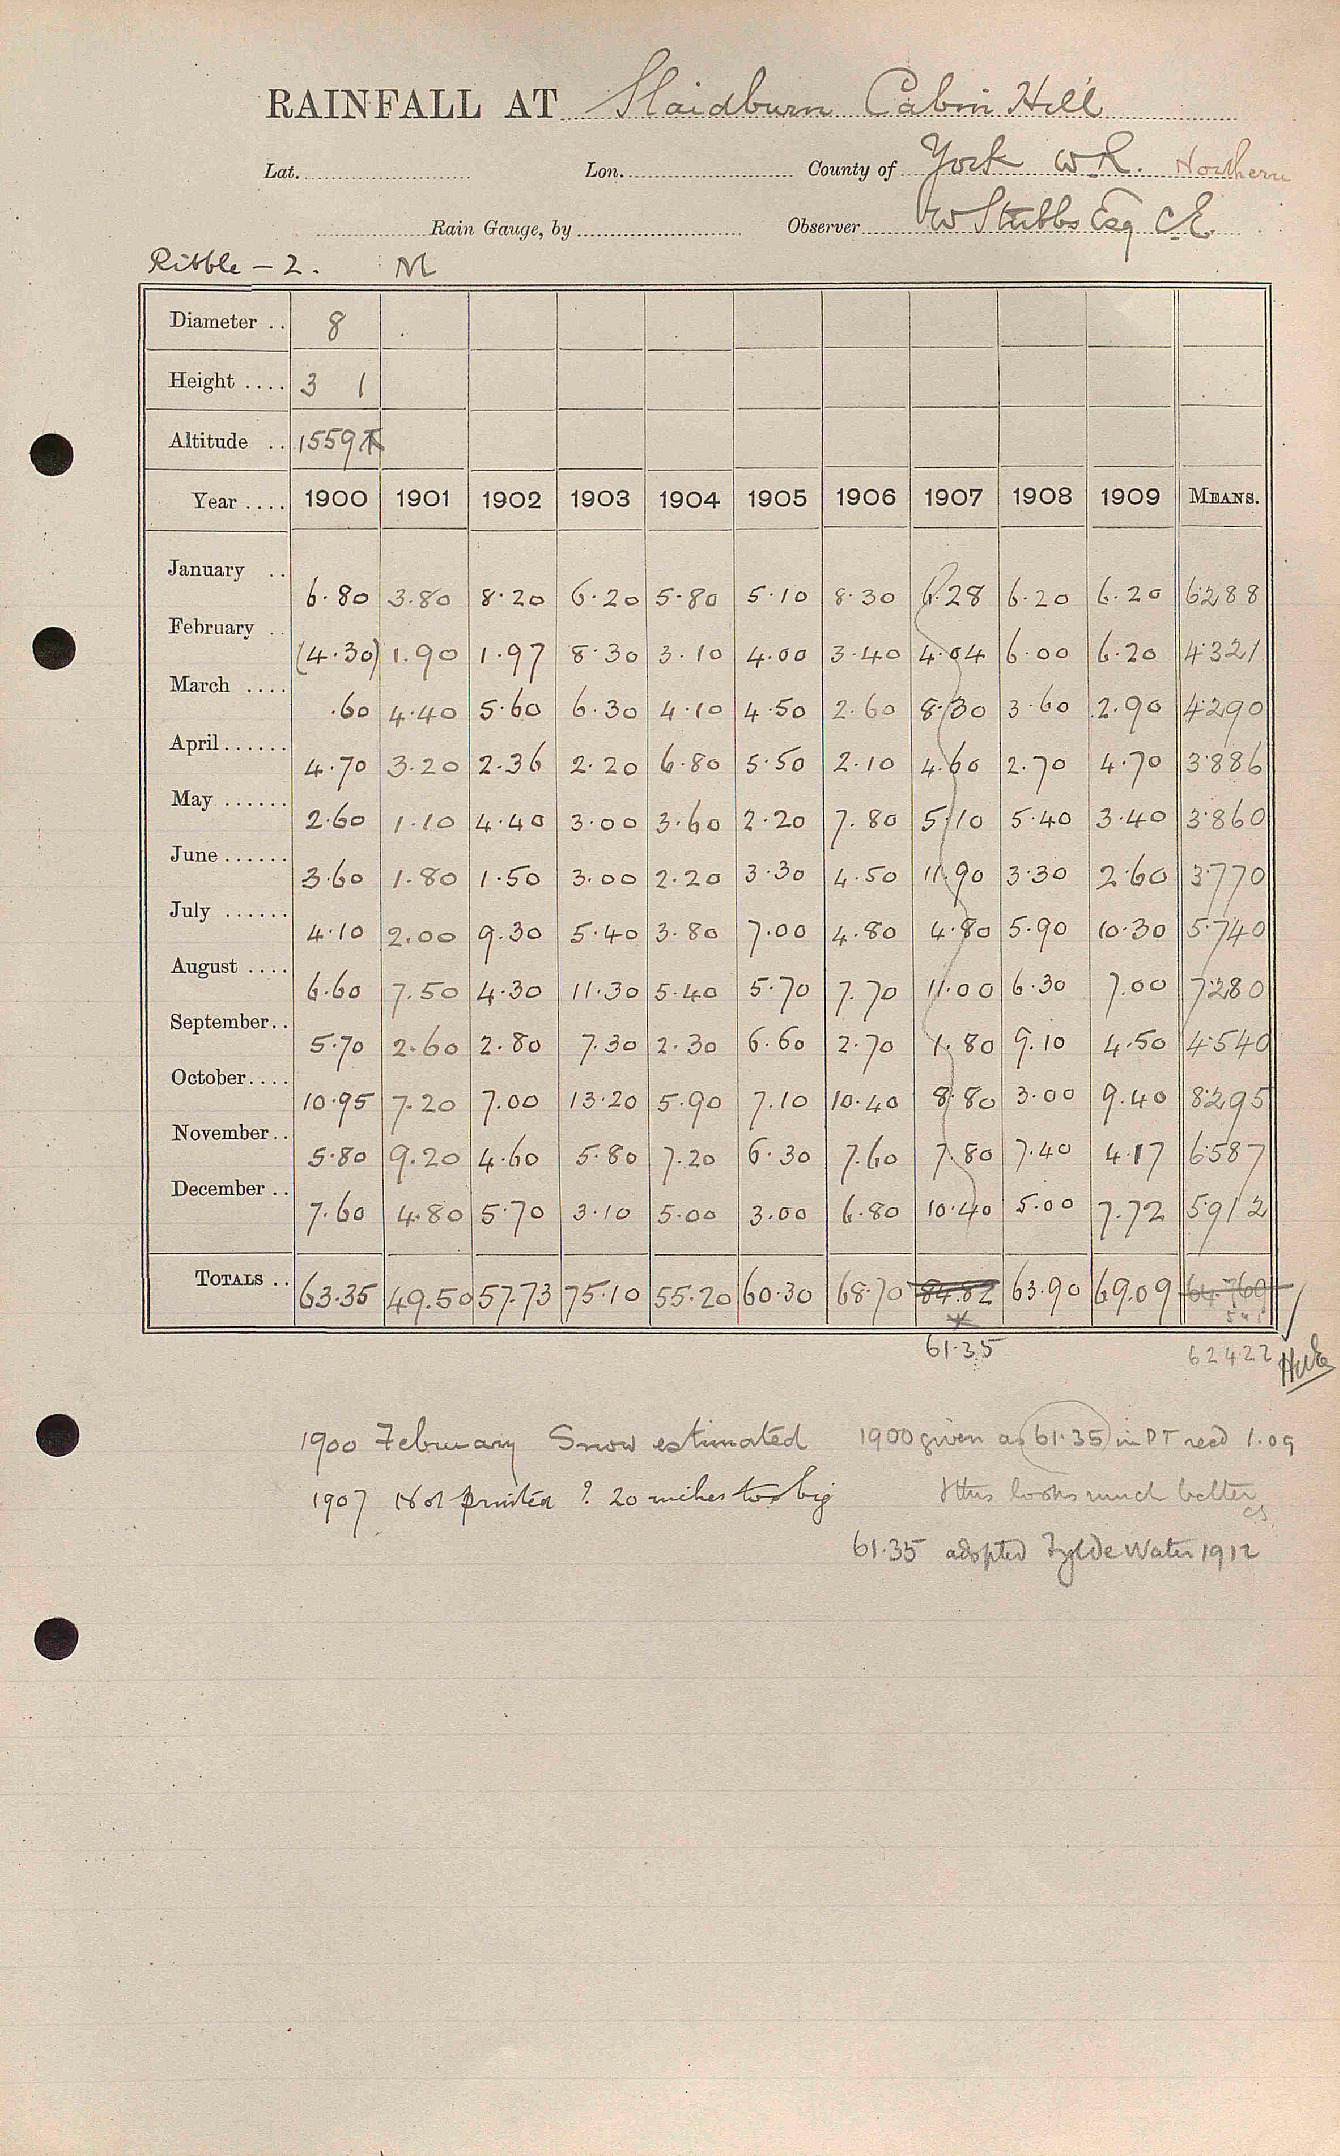 RAINFALL AT Slaidburn Cabin Hill
Lat. Lon. County of York W.R. Northern
Rain Gauge, by Observer W Stubbs Esq C.E.
Ribble - 2. M
Diameter .. 8
Height .... 3 1
Altitude .. 1559
Year .... 1900 1901 1902 1903 1904 1905 1906 1907 1908 1909 MEANS.
January .. 6.80 3.80 8.20 6.20 5.80 5.10 8.30 6.28 6.20 6.20 6.288
February .. (4.30) 1.90 1.97 8.30 3.10 4.00 3.40 4.04 6.00 6.20 4.321
March .... .60 4.40 5.60 6.30 4.10 4.50 2.60 8.30 3.60 2.90 4.290
April...... 4.70 3.20 2.36 2.20 6.80 5.50 2.10 4.60 2.70 4.70 3.886
May ...... 2.60 1.10 4.40 3.00 3.60 2.20 7.80 5.10 5.40 3.40 3.860
June...... 3.60 1.80 1.50 3.00 2.20 3.30 4.50 11.90 3.30 2.60 3.770
July ...... 4.10 2.00 9.30 5.40 3.80 7.00 4.80 4.80 5.90 10.30 5.740
August .... 6.60 7.50 4.30 11.30 5.40 5.70 7.70 11.00 6.30 7.00 7.280
September.. 5.70 2.60 2.80 7.30 2.30 6.60 2.70 1.80 9.10 4.50 4.540
October.... 10.95 7.20 7.00 13.20 5.90 7.10 10.40 8.80 3.00 9.40 8.295
November.. 5.80 9.20 4.60 5.80 7.20 6.30 7.60 7.80 7.40 4.17 6.587
December .. 7.60 4.80 5.70 3.10 5.00 3.00 6.80 10.40 5.00 7.72 5.912
TOTALS .. 63.35 49.50 57.73 75.10 55.20 60.30 68.70 84.82 63.90 69.09 64.769
61.35 62422
1900 February Snow estimated 1900 given as 61.35 in PT recd 1.09
1907 Not printed ? 20 inches too big & this looks much better
61.35 adopted Fylde Water 1912